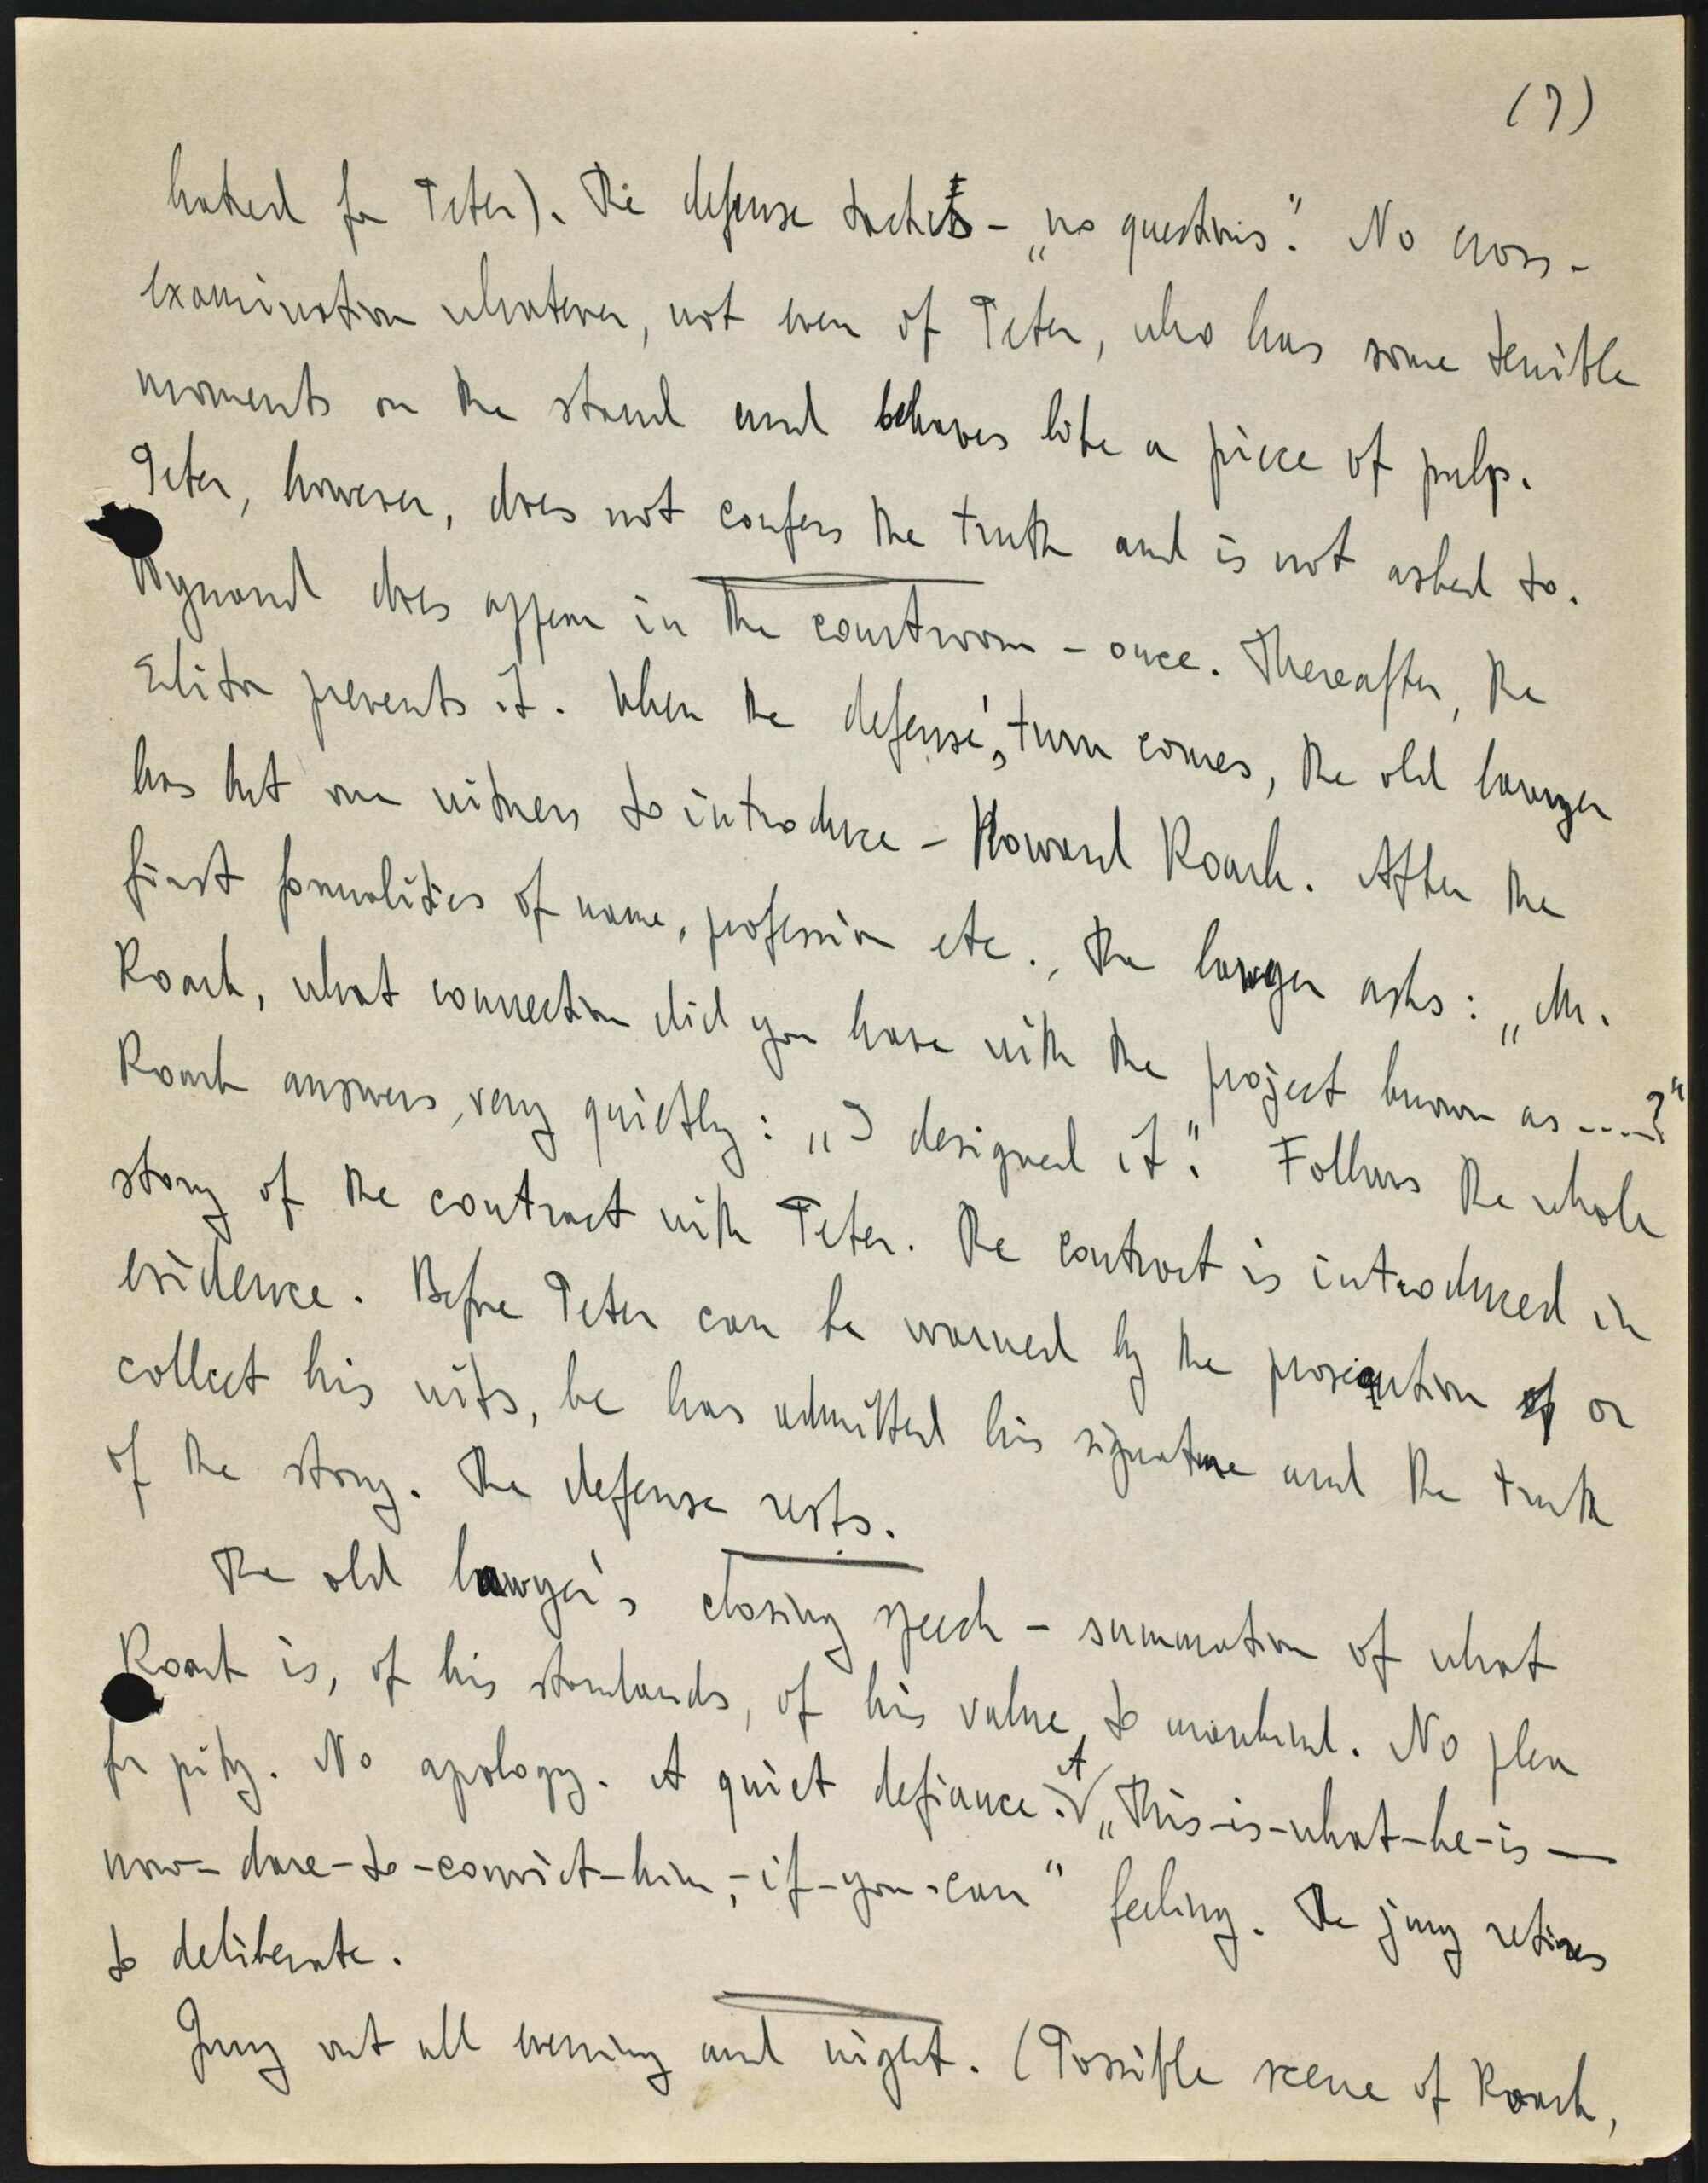 (7)
hatred for Peter). The defense tactics – „no questions." No cross-
examination whatever, not even of Peter, who has some terrible
moments on the stand and behaves like a piece of pulp.
Peter, however, does not confess the truth and is not asked to.
Wynand does appear in the courtroom – once. Thereafter, the
Elita prevents it. When the defense's turn comes, the old lawyer
has but one witness to introduce – Howard Roark. After the
first formalities of name, profession etc., the lawyer asks: „Mr.
Roark, what connection did you have with the project known as ----?"
Roark answers, very quietly: „I designed it." Follows the whole
story of the contract with Peter. The contract is introduced in
evidence. Before Peter can be warned by the prosecution or
collect his wits, he has admitted his signature and the truth
of the story. The defense rests.
The old lawyer's closing speech – summation of what
Roark is, of his standards, of his value to mankind. No plea
for pity. No apology. A quiet defiance. A „This-is-what-he-is—
now-dare-to-convict-him,-if-you-can" feeling. The jury retires
to deliberate.
Jury out all evening and night. (Possible scene of Roark,